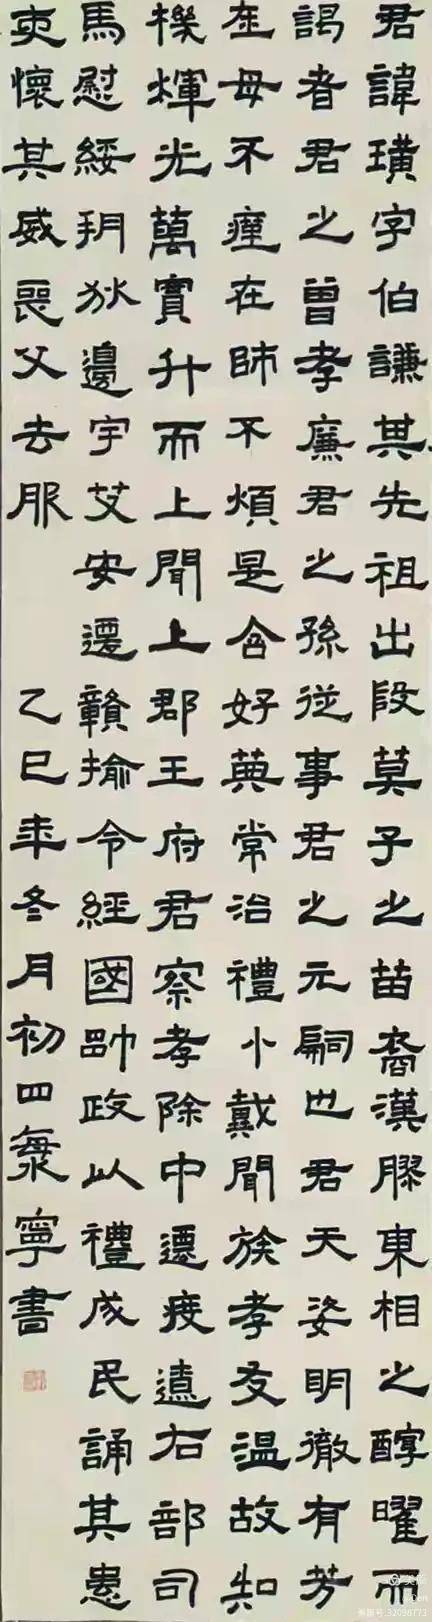 君諱璜字伯謙其先祖出段莫子之苗裔漢膠東相之醇曜而
謁者君之曾孝廉君之孫從事君之元嗣也君天姿明徹有芳
在母不瘽在師不煩是含好典常治禮小戴聞族孝友温故知
機煇光萬實升而上聞上郡王府君察孝除中遷度遼右部司
馬慰綏朔狄邊宇艾安遷贛揄令經國帥政以禮成民誦其惠
夷懷其威喪父去服 乙巳年冬月初四寧書